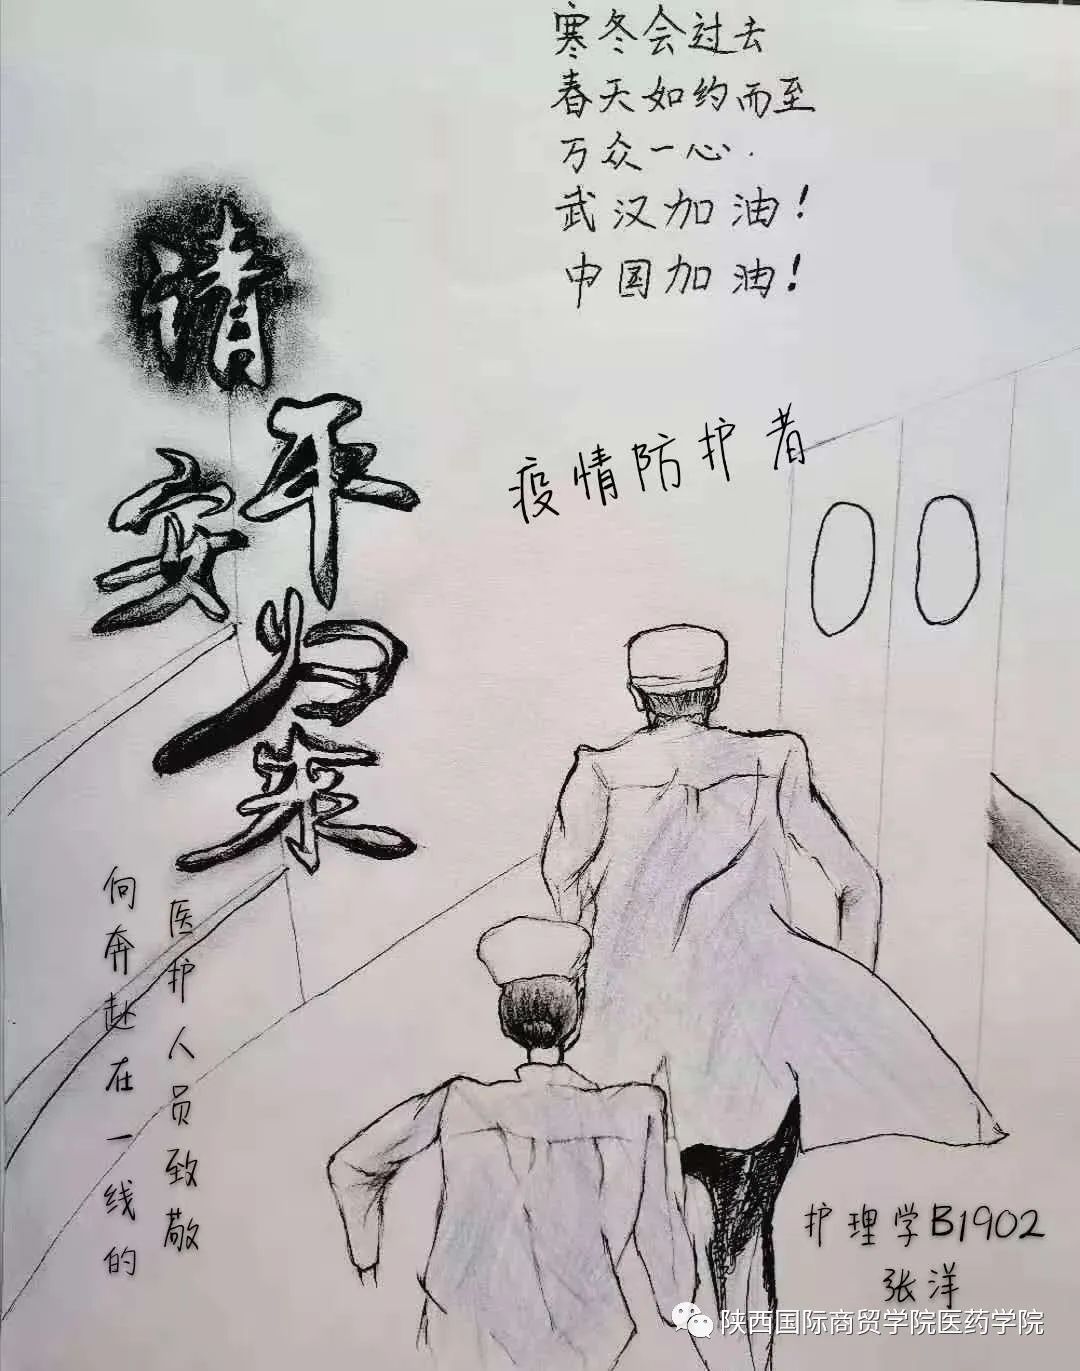 寒冬会过去
春天如约而至
万众一心.
武汉加油！
中国加油！
请
平
安
归
来
疫情防护者
向奔赴在一线的
医护人员致敬
护理学B1902
张洋
陕西国际商贸学院医药学院